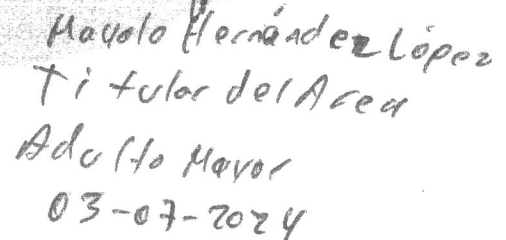 Mayolo Hernández López
Titular del Area
Adulto Mayor
03-07-2024